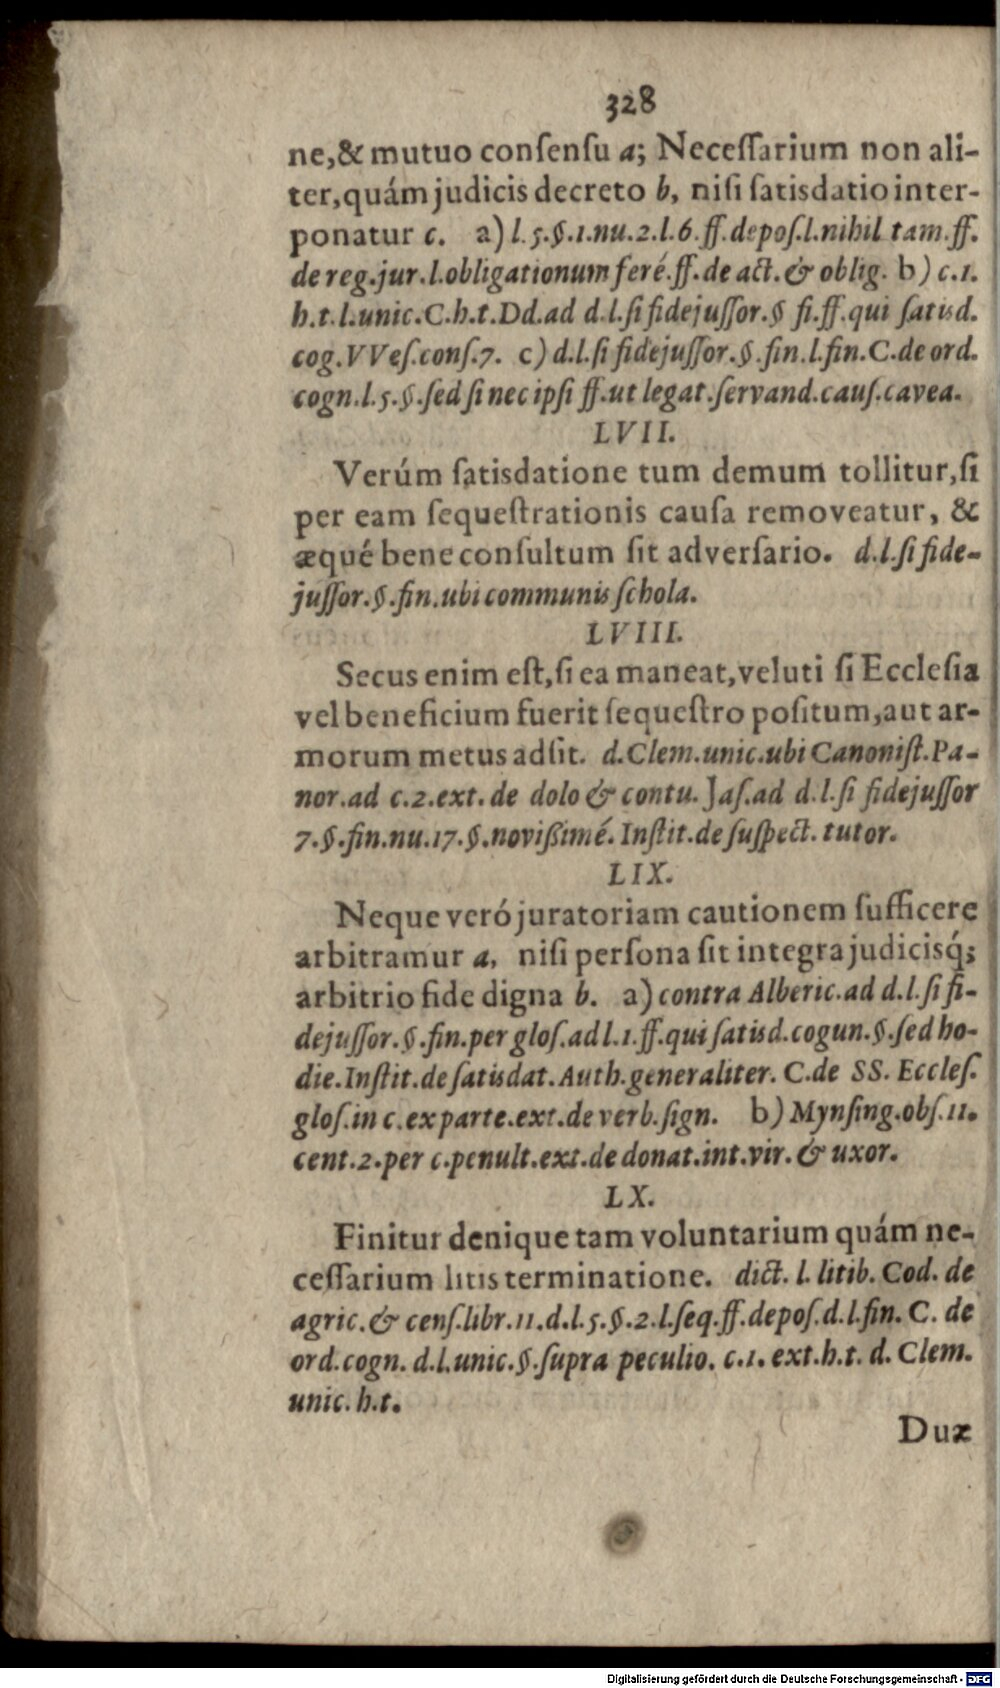 328
ne,& mutuo conſenſu a; Neceſſarium non ali-
ter,quám judicis decreto b, niſi ſatisdatio inter-
ponatur c. a) l. 5.§.1.nu.2.l.6.ff.depoſ.l.nihil tam.ff.
de reg.jur.l.obligationum feré.ff.de act.& oblig. b) c.1.
h.t.l.unic.C.h.t.Dd.ad d.l.ſi fidejuſſor.§ fi.ff.qui ſatisd.
cog.VVeſ.conſ.7. c) d.l.ſi fidejuſſor.§.fin.l.fin.C.de ord.
cogn.l.5.§.ſed ſi nec ipſi ff.ut legat.ſervand.cauſ.cavea.
LVII.
Verúm ſatisdatione tum demum tollitur,ſi
per eam ſequeſtrationis cauſa removeatur, &
æqué bene conſultum ſit adverſario. d.l.ſi fide-
juſſor.§.fin.ubi communis ſchola.
LVIII.
Secus enim eſt,ſi ea maneat,veluti ſi Eccleſia
vel beneficium fuerit ſequeſtro poſitum,aut ar-
morum metus adſit. d.Clem.unic.ubi Canoniſt.Pa-
nor.ad c.2.ext.de dolo & contu. Jaſ.ad d.l.ſi fidejuſſor
7.§.fin.nu.17.§.novißimé. Inſtit.de ſuſpect. tutor.
LIX.
Neque veró juratoriam cautionem ſufficere
arbitramur a, niſi perſona ſit integra judicisq́;
arbitrio fide digna b. a) contra Alberic.ad d.l.ſi fi-
dejuſſor.§.fin.per gloſ.ad l.1.ff.qui ſatisd.cogun.§.ſed ho-
die.Inſtit.de ſatisdat.Auth.generaliter. C.de SS. Eccleſ.
gloſ.in c.ex parte.ext.de verb.ſign. b) Mynſing.obſ.11.
cent.2.per c.penult.ext.de donat.int.vir.& uxor.
LX.
Finitur denique tam voluntarium quám ne-
ceſſarium litis terminatione. dict. l. litib. Cod. de
agric.& cenſ.libr.11.d.l.5.§.2.l.ſeq.ff.depoſ.d.l.fin. C. de
ord.cogn. d.l.unic.§.ſupra peculio. c.1. ext.h.t. d. Clem.
unic. h.t.
Duæ
Digitalisierung gefördert durch die Deutsche Forschungsgemeinschaft - DFG